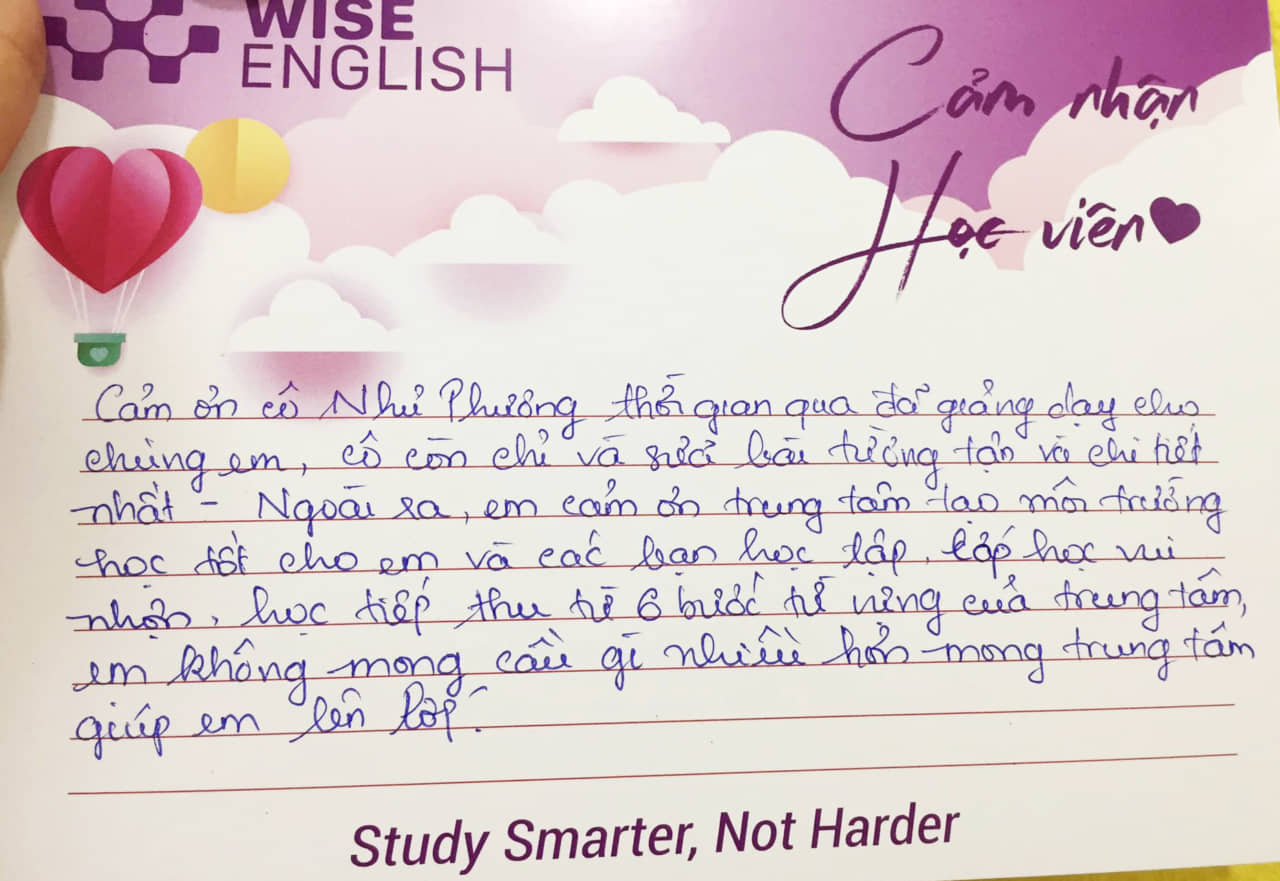 WISE
ENGLISH
Cảm nhận
Học viên
Cảm ơn cô Như Phương thời gian qua đã giảng dạy cho
chúng em, cô còn chỉ và sửa bài tường tận và chi tiết
nhất - Ngoài ra, em cảm ơn trung tâm tạo môi trường
học tốt cho em và các bạn học tập, lớp học vui
nhộn, học tiếp thu từ 6 bước từ vựng của trung tâm,
em không mong cầu gì nhiều hơn mong trung tâm
giúp em lên lớp.
Study Smarter, Not Harder